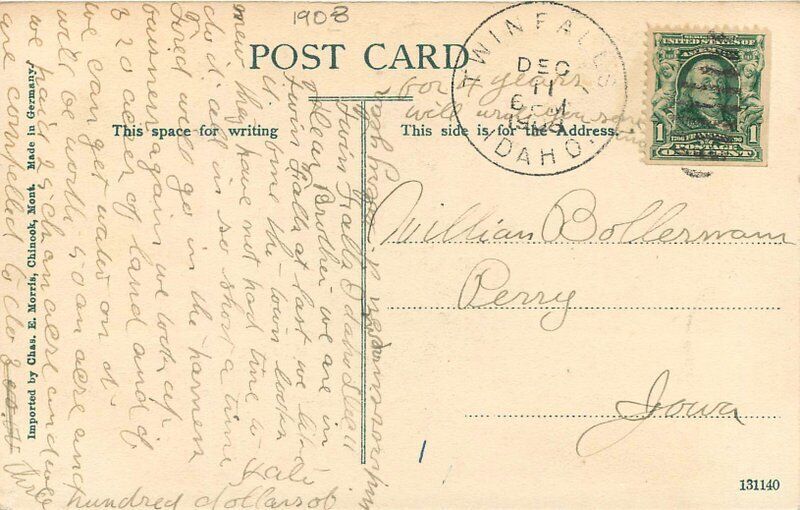 1908
POST CARD
This space for writing
This side is for the Address.
TWIN FALLS
DEC
11
6 PM
1908
IDAHO.
UNITED STATES OF AMERICA
1
1
POSTAGE
ONE CENT
for 4 years
will
William Bollermann
Perry
Iowa
131140
Imported by Chas. E. Morris, Chinook, Mont. Made in Germany.
Twin Falls Idaho
Dear Brother we are in
Twin Falls at last we like
it some the town looks
new they have not had time to
do it all in so short a time
Fred will go in the harness
business again we took up
320 acres of land and if
we can get water on it
will be worth 50 an acre and
we paid 25 c an acre and we
are compelled to do three
hundred dollars of